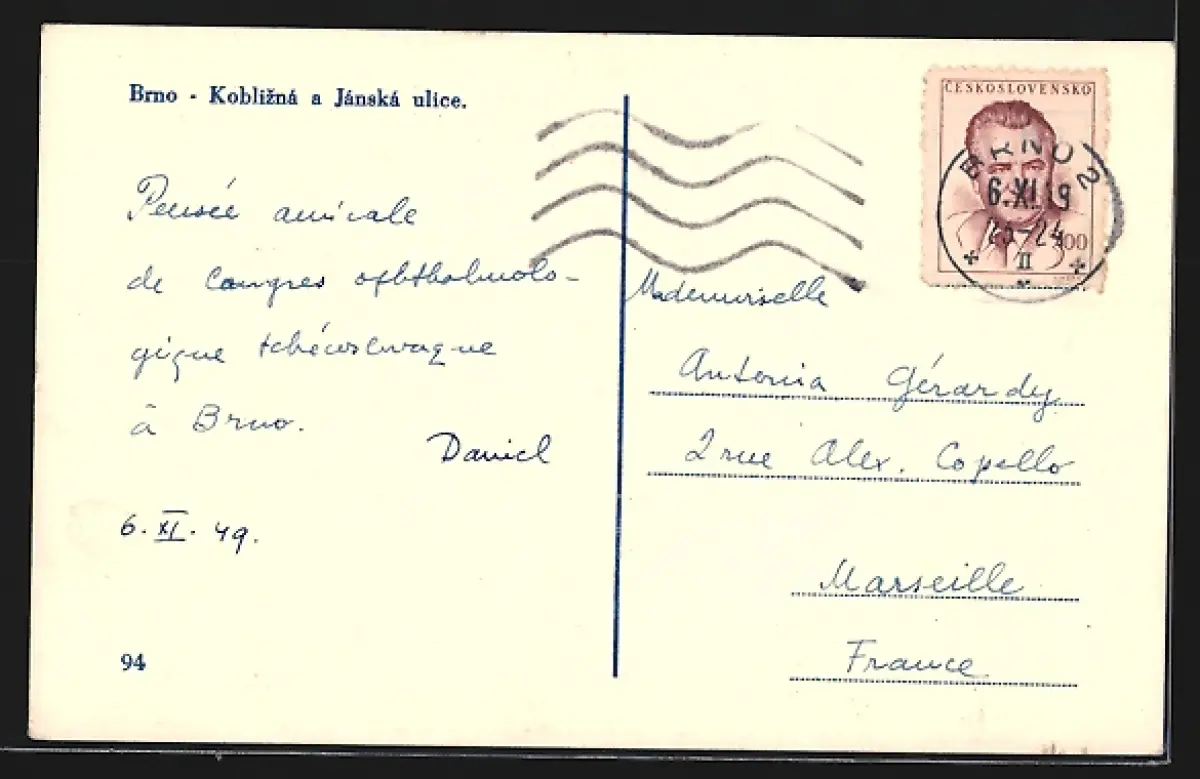 Brno - Kobližná a Jánská ulice.
Pensée amicale
de Congres ophthalmolo-
gique tchécoslovaque
à Brno.
Daniel
6. XI. 49.
94
ČESKOSLOVENSKO
BRNO 2
6.XI.49
23-24
II
3·00
Mademoiselle
Antonia Gérardy
2 rue Alex. Copello
Marseille
France